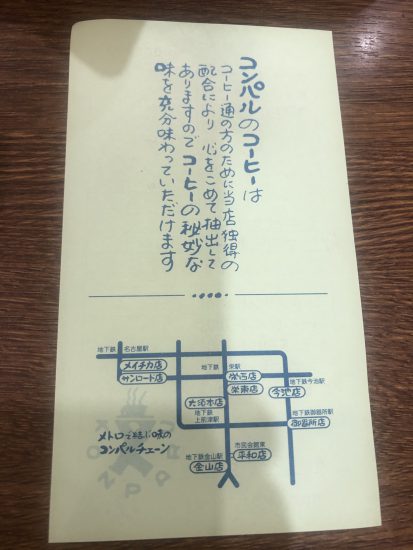 コンパルのコーヒーは
コーヒー通の方のために当店独得の
配合により 心をこめて抽出して
ありますので コーヒーの秘妙な
味を充分味わっていただけます
地下鉄 名古屋駅
メイチカ店
サンロード店
地下鉄 栄駅
栄西店
栄東店
地下鉄今池駅
今池店
大須本店
地下鉄
上前津駅
地下鉄御器所駅
御器所店
市民会館東
平和店
地下鉄金山駅
金山店
メトロで結ぶ味の
コンパルチェーン